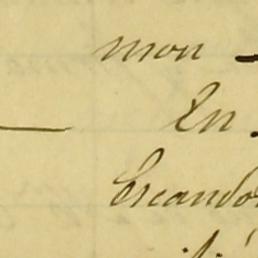 mon —
— En
Escando